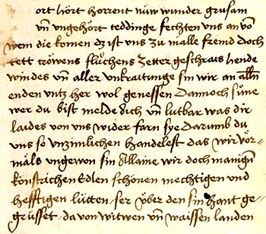 ort hört horrent nüw wunder grusam
vn̄ vngehört teddinge fechten vns an vō
wem die komen dz ist vns zu malle fremd doch
tett tröwens flüchens Zetter geschraes hende
windes vn̄ aller vnkraitunge sin wir an
enden vntz her wol genessen Dannoch süne
wer du bist melde dich vn̄ lutbar was dir
laides von vns wider farn sye Darumb du
vns so vnzimlichen handelest das wir vor
måls vngewon sin Allaine wir doch manigen
künstrichen Edlen schönen mechtigen vnd
hefftigen lütten ser über den sin hant ge
grüsset da von witwen vn̄ waissen landen